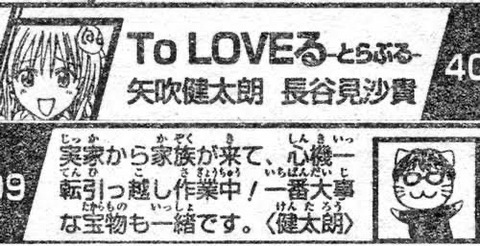 To LOVEる-とらぶる-
矢吹健太朗 長谷見沙貴
40
09
実家から家族が来て、心機一
転引っ越し作業中!一番大事
な宝物も一緒です。〈健太朗〉